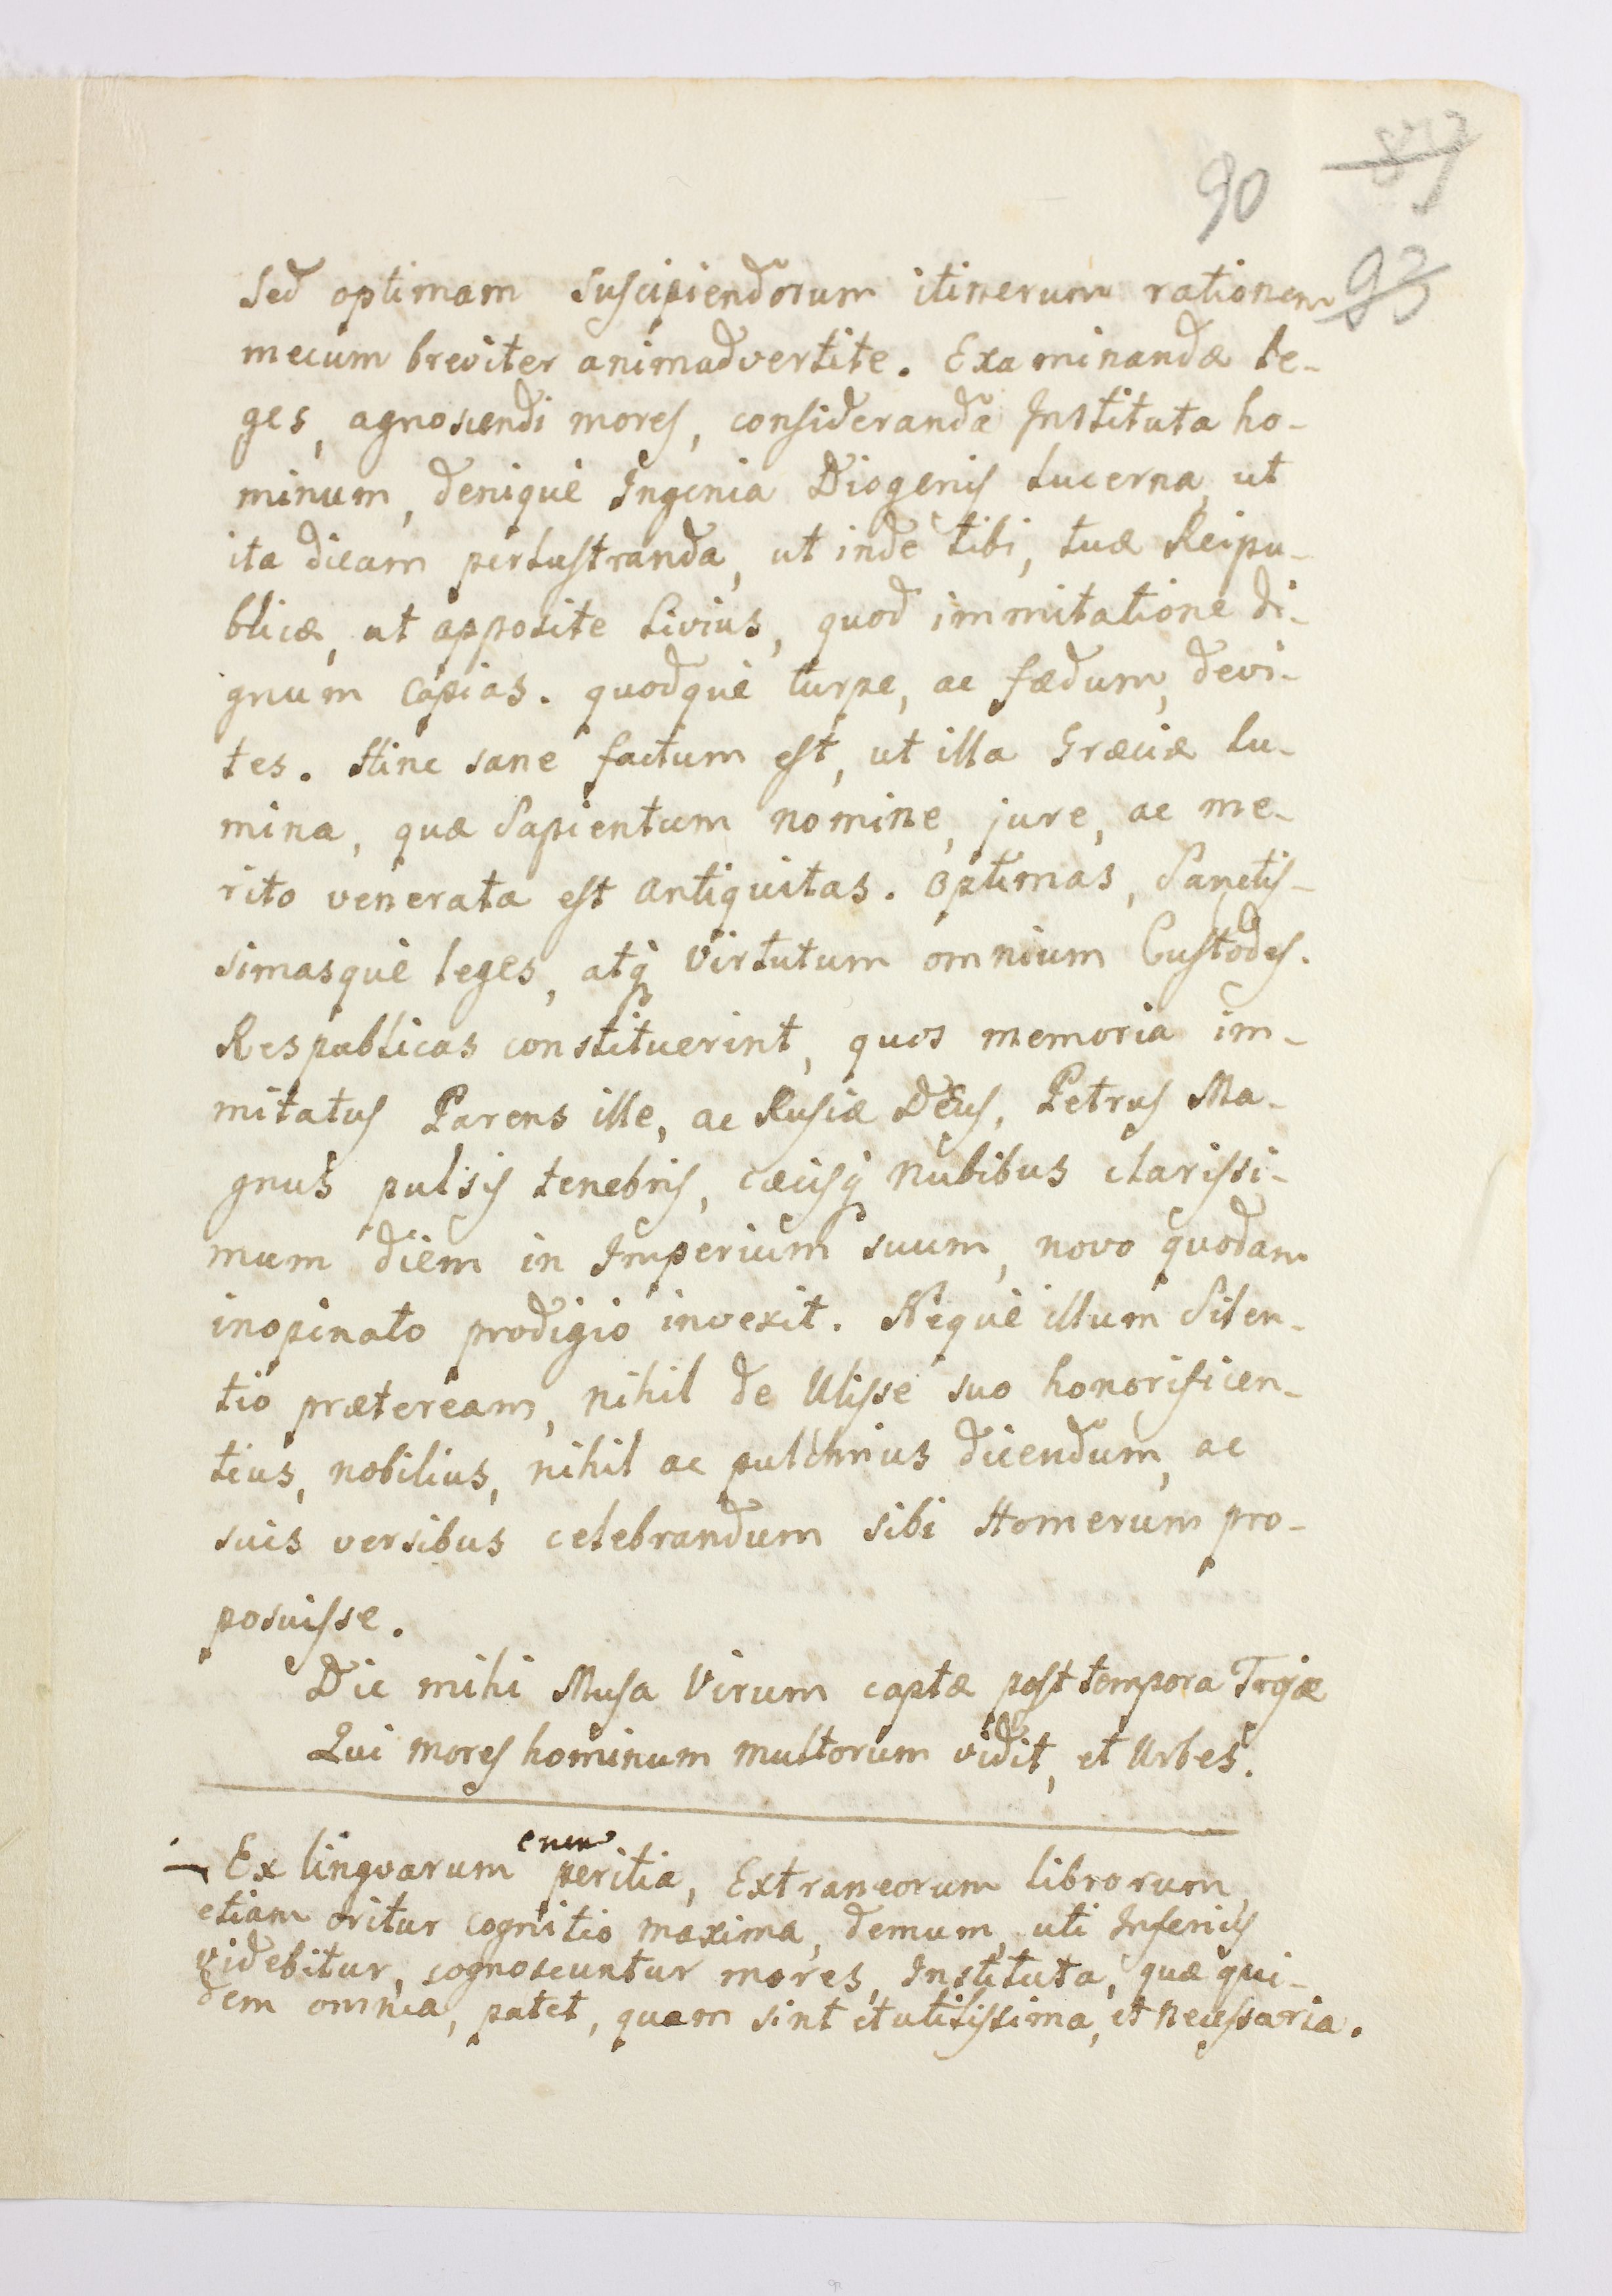 90
87
93
Sed optimam suscipiendorum itinerum rationem
mecum breviter animadvertite. Examinandæ le-
ges, agnoscendi mores, considerandæ Instituta ho-
minum, denique Ingenia Diogenis Lucerna, ut
ita dicam perlustranda, ut inde tibi, tuæ Reipu-
blicæ, ut apposite Livius, quod immitatione di-
gnum capias. quodquè turpe, ac fœdum, devi-
tes. Hinc sane factum est, ut illa Græciæ lu-
mina, quæ Sapientum nomine, jure, ac me-
rito venerata est antiquitas. Optimas, Sanctis-
simasquè leges, atq́ Virtutum omnium Custodes.
Respublicas constituerint, quos memoria im-
mitatus Parens ille, ac Rusiæ DEus, Petrus Ma-
gnus pulsis tenebris, cæcisq́ nubibus clarissi-
mum diem in Imperium suum, novo quodam
inopinato prodigio invexit. Nequè illum Silen-
tio præteream, nihil de Ulisse suo honorificen-
tius, nobilius, nihil ac pulchrius dicendum, ac
suis versibus celebrandum sibi Homerum pro-
posuisse.
Dic mihi Musa Virum captæ post tempora Trojæ
Qui mores hominum multorum vidit, et Urbes.
enim
Ex lingvarum peritia, Extraneorum librorum,
etiam oritur cognitio maxima, demum, uti Inferius
videbitur, cognoscuntur mores, Instituta, quæ qui-
dem omnia, patet, quam sint et utilissima, et necessaria.